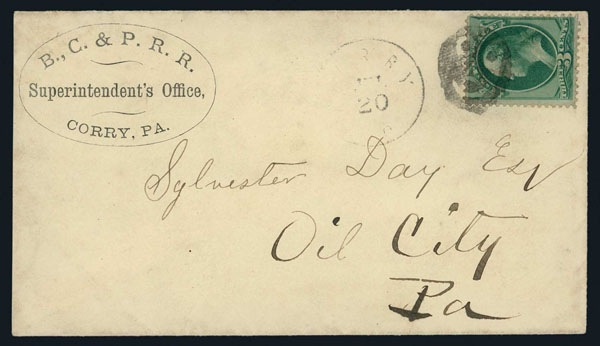 B., C. & P. R. R.
Superintendent's Office,
CORRY, PA.
20
3
Sylvester Day Esq
Oil City
Pa